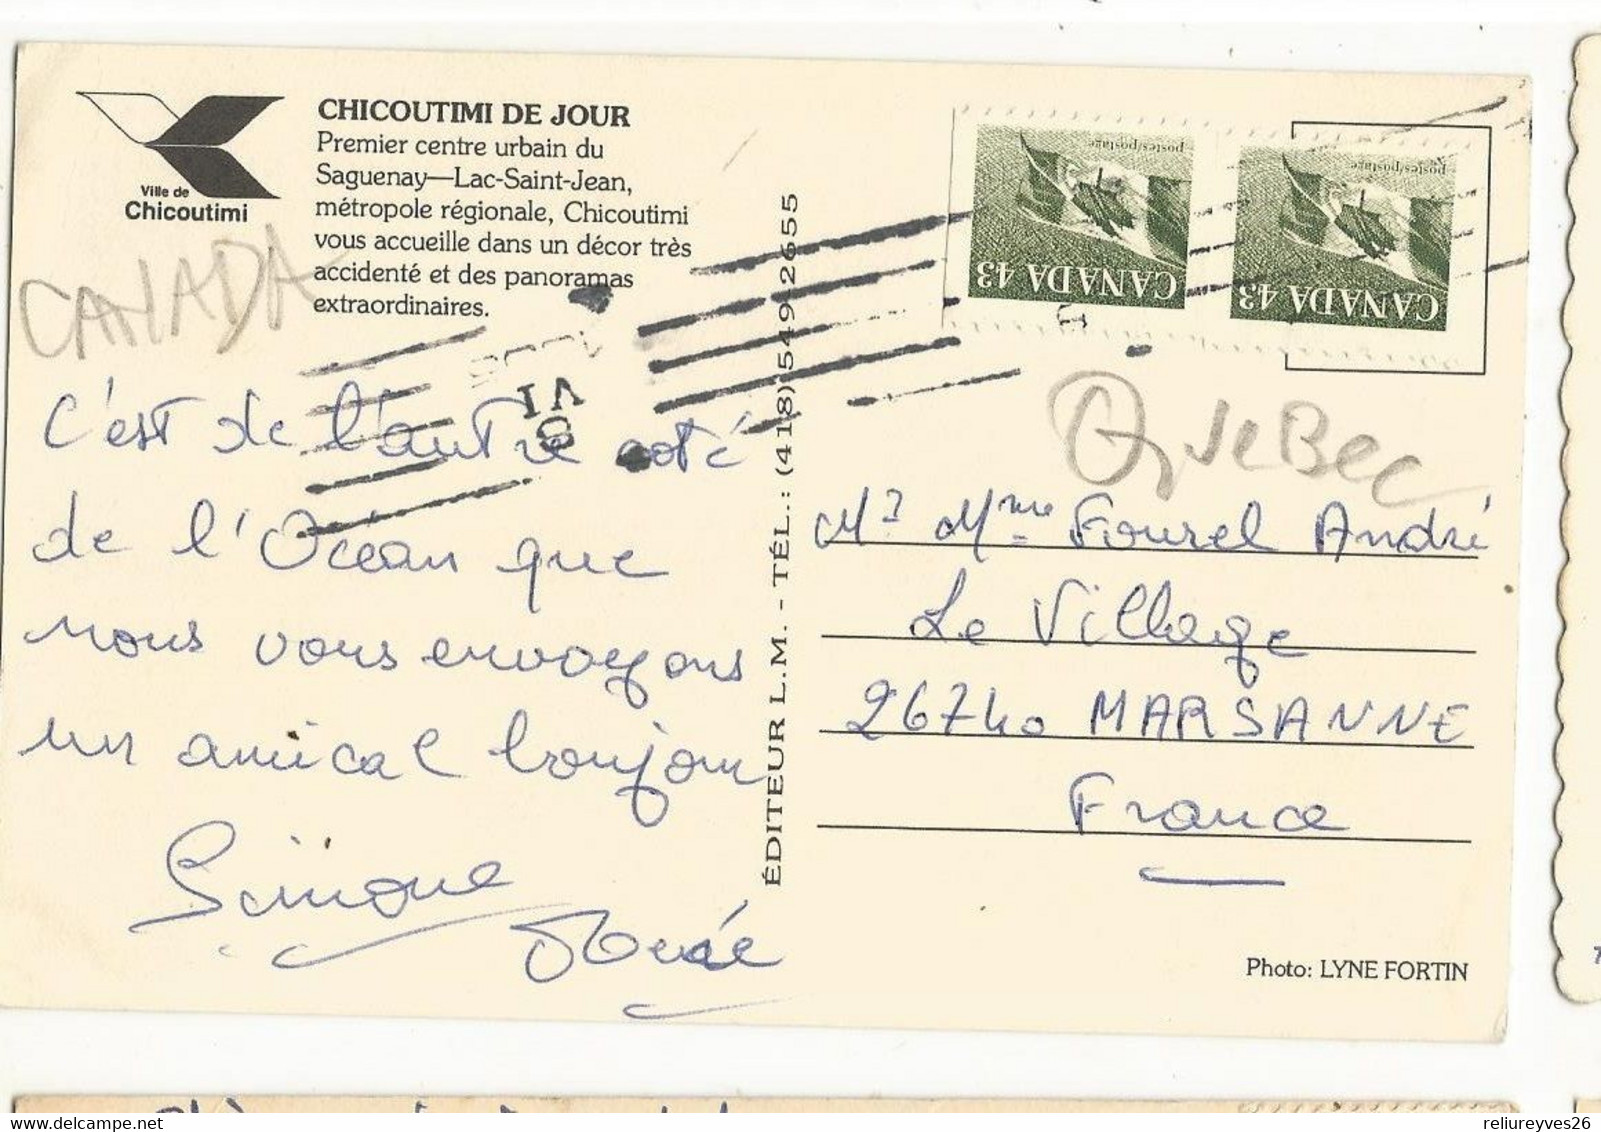 Ville de
Chicoutimi
CHICOUTIMI DE JOUR
Premier centre urbain du
Saguenay—Lac-Saint-Jean,
métropole régionale, Chicoutimi
vous accueille dans un décor très
accidenté et des panoramas
extraordinaires.
CANADA
C'est de l'autre coté
de l'Océan que
nous vous envoyons
un amical bonjour
Simone
ÉDITEUR L.M. - TÉL.: (418) 549-2655
postes/postage
CANADA 43
postes/postage
CANADA 43
VI
QUeBec
Mr Mme Fourel André
Le Village
26740 MARSANNE
France
Photo: LYNE FORTIN
reliureyves26